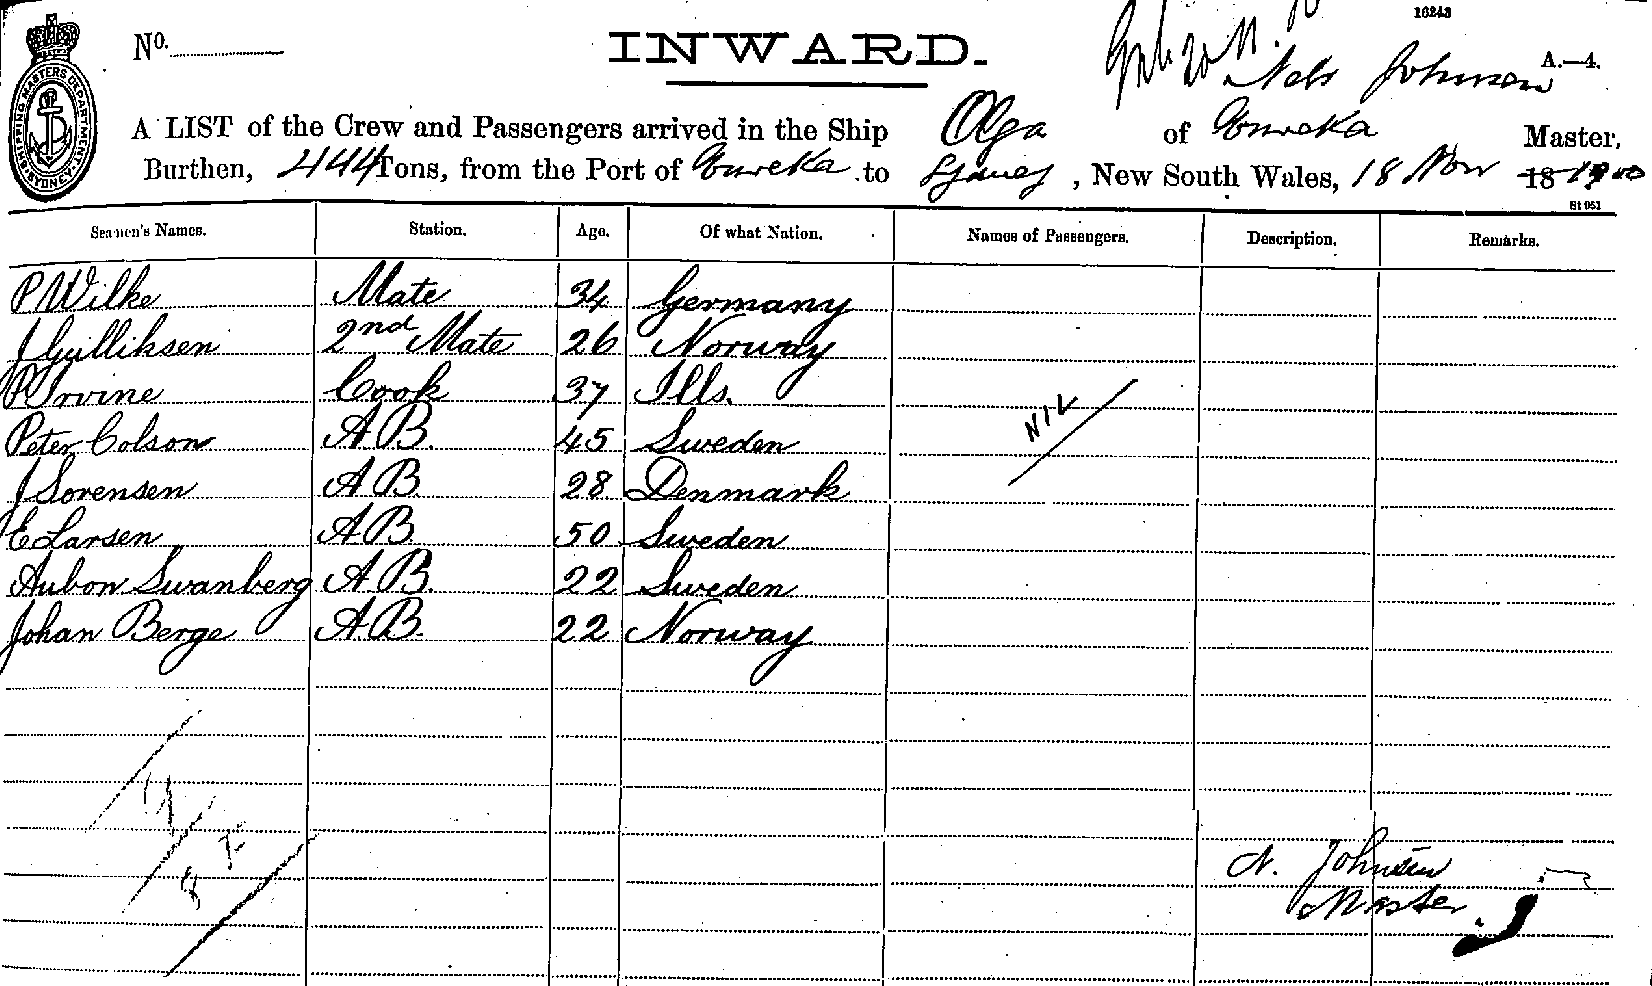 16243
No.
INWARD.
Nels Johnson
A.—4.
A LIST of the Crew and Passengers arrived in the Ship Olga of Eureka Master,
Burthen, 444 Tons, from the Port of Eureka to Sydney, New South Wales, 18 Nov 18 1900
SHIPPING MASTERS DEPARTMENT SYDNEY
Seamen's Names. Station. Age. Of what Nation. Names of Passengers. Description. Remarks.
P Wilke Mate 34 Germany
J Gulliksen 2nd Mate 26 Norway
P Irvine Cook 37 Ills.
NIL
Peter Colson A.B. 45 Sweden
J Sorensen A B 28 Denmark
E Larsen A B 50 Sweden
Aubon Swanberg A B. 22 Sweden
Johan Berge A.B. 22 Norway
N. Johnsen
Master